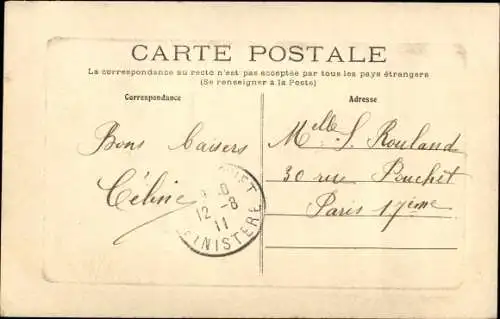 CARTE POSTALE
La correspondance au recto n'est pas acceptée par tous les pays étrangers
(Se renseigner à la Poste)
Correspondance
Adresse
Bons baisers
Céline
12 -8
11
FINISTERE
Melle S. Rouland
30 rue Pouchet
Paris 17ème